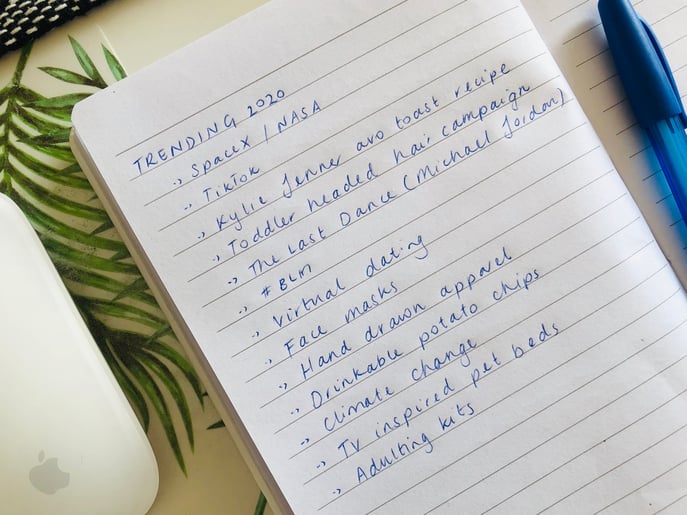 TRENDING 2020
·> SpaceX / NASA
·> TikTok
·> Kylie Jenner avo toast recipe
·> Toddler headed hair campaign
·> The Last Dance (Michael Jordan)
·> #BLM
·> Virtual dating
·> Face masks
·> Hand drawn apparel
·> Drinkable potato chips
·> Climate change
·> TV inspired pet beds
·> Adulting kits